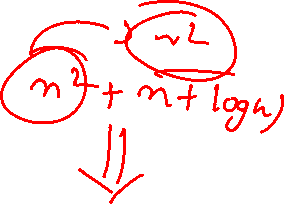 n²
n² + n + logn)